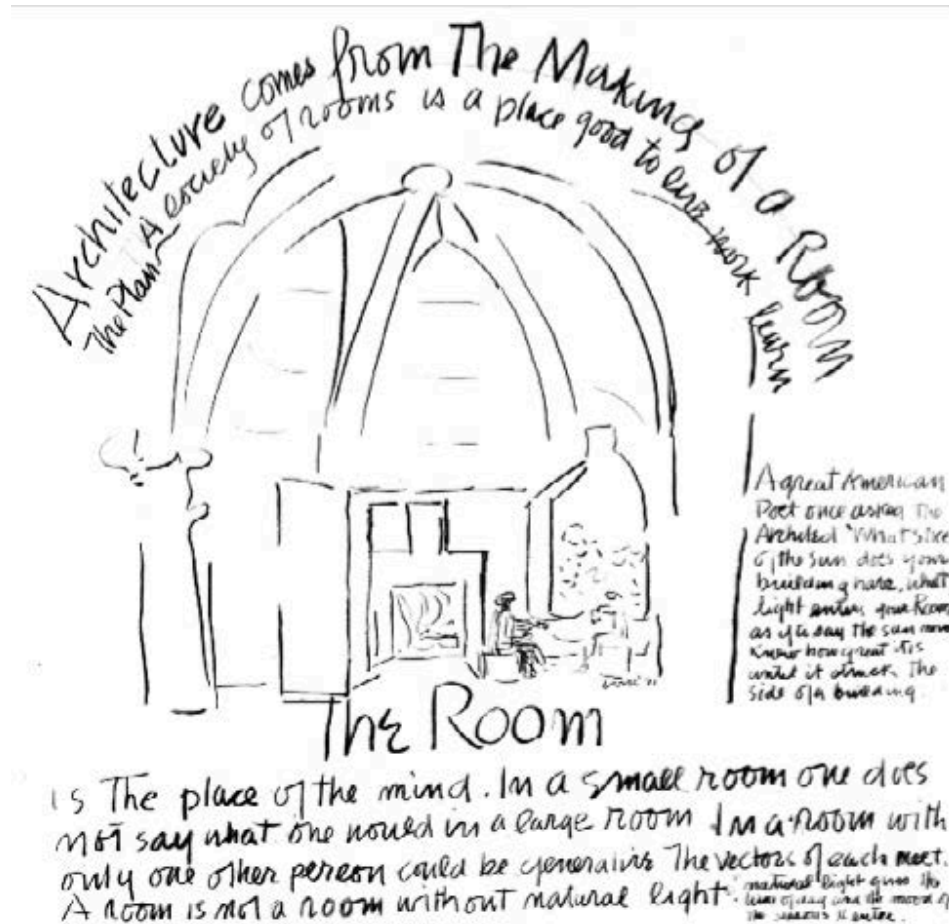 Architecture comes from The Making of a Room
The Plan A society of rooms is a place good to live work learn
A great American
Poet once asked the
Architect 'What slice
of the sun does your
building have, what
light enters your Room
as if to say the sun never
knew how great it is
until it struck the
side of a building
The Room
is the place of the mind. In a small room one does
not say what one would in a large room In a room with
only one other person could be generative The vectors of each meet.
A room is not a room without natural light.
natural light gives the
time of day and the mood of
the seasons to enter